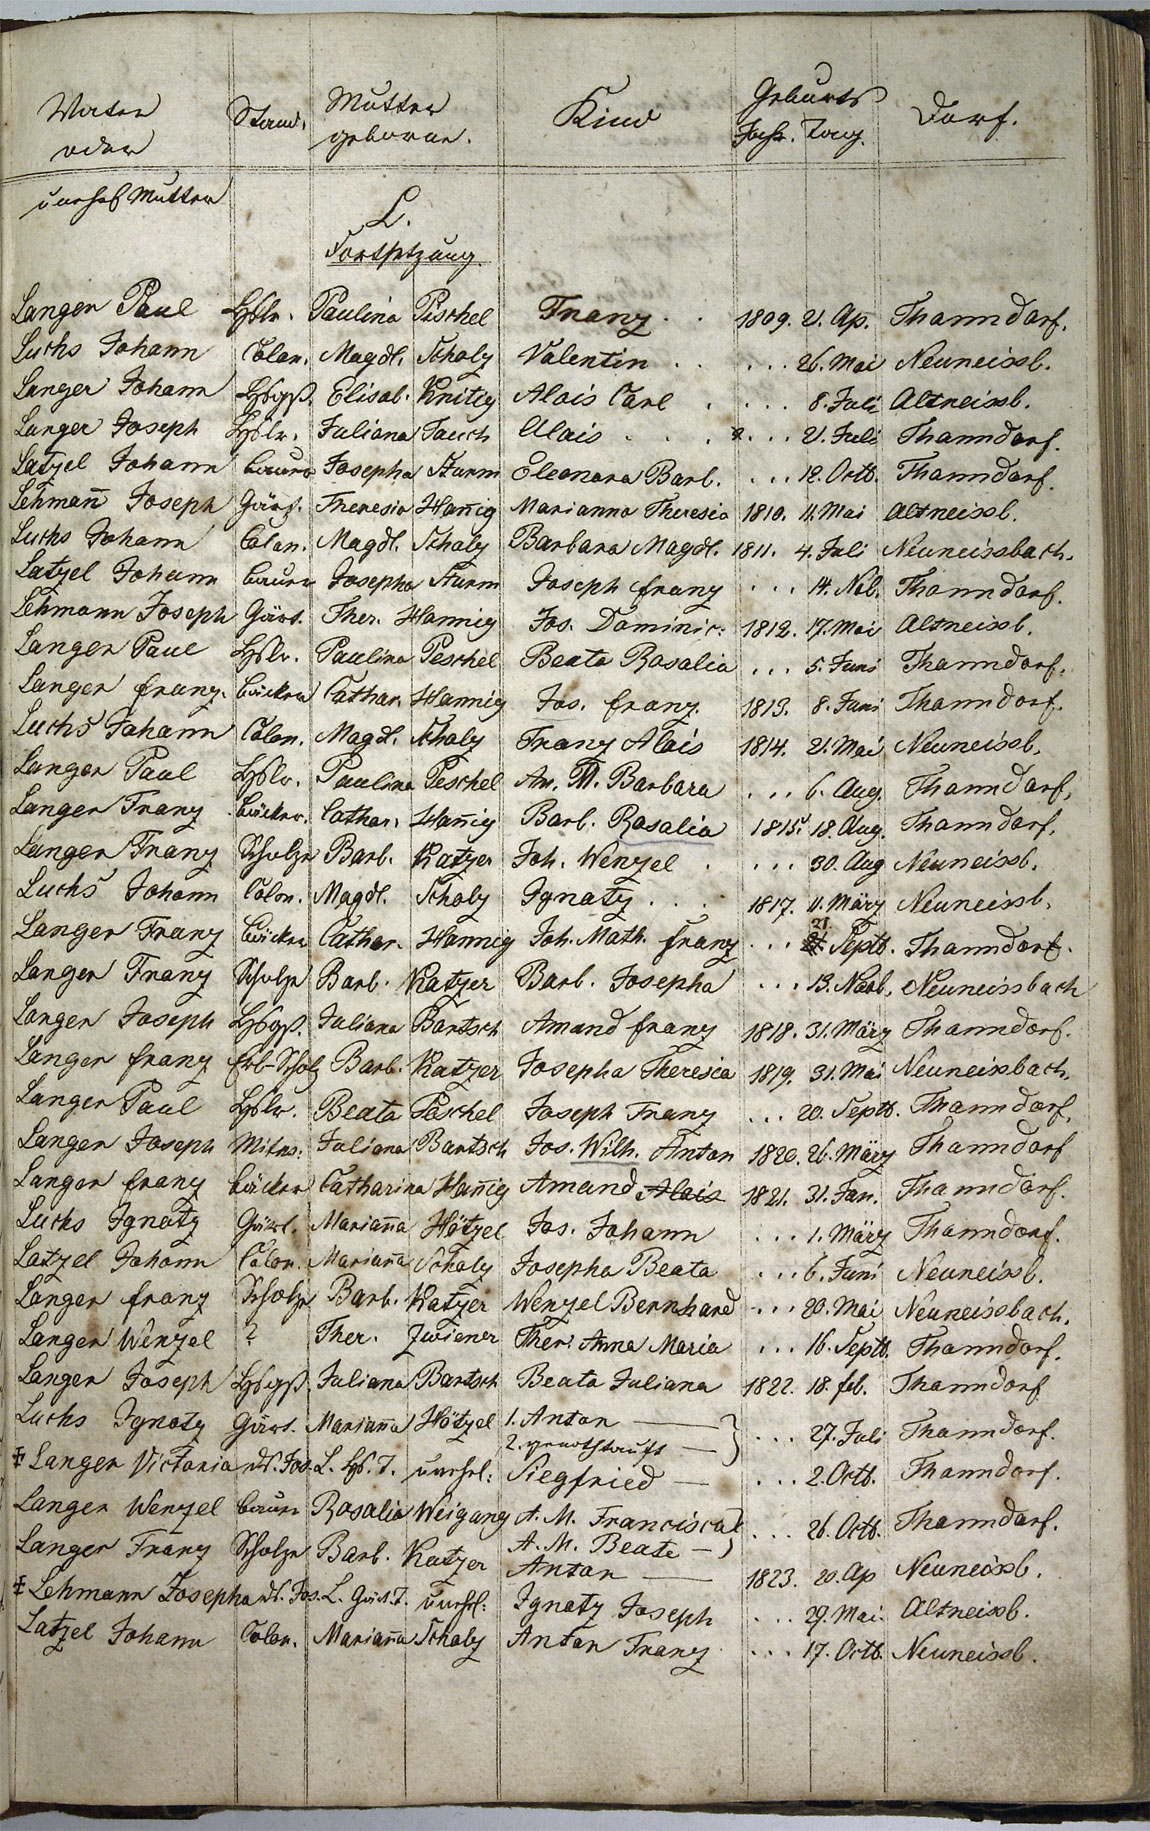 Vater Stand. Mutter Kind Geburts Dorf.
oder geborne. Jahr. Tag.
unehel Mutter
L.
Fortsetzung.
Langer Paul Hslr. Paulina Peschel Franz . . 1809. 21. Ap. Thanndorf.
Luchs Johann Colon. Magdl. Scholz Valentin . . . . . 26. Mai Neuneissb.
Langer Johann Hsgß. Elisab. Knitig Alois Carl . . . . 8. Juli Altneissb.
Langer Joseph Hslr. Juliana Tauch Alois . . . . . . . 21. Juli Thanndorf.
Latzel Johann Bauer Josepha Sturm Eleonora Barb. . . . 12. Octb. Thanndorf.
Lehman̄ Joseph Gärt. Theresia Han̄ig Marianna Theresia 1810. 11. Mai Altneissb.
Luchs Johann Colon. Magdl. Scholz Barbara Magdl. 1811. 4. Juli Neuneissbach.
Latzel Johann Bauer Josepha Sturm Joseph Franz . . . 14. Nob. Thanndorf.
Lehmann Joseph Gärt. Ther. Hannig Jos. Dominic. 1812. 17. Mai Altneissb.
Langer Paul Hslr. Paulina Peschel Beata Rosalia . . . 5. Juni Thanndorf.
Langer Franz. Bäcker Cathar. Hannig Jos. Franz. 1813. 8. Juni Thanndorf.
Luchs Johann Colon. Magdl. Scholz Franz Alois 1814. 21. Mai Neuneissb.
Langer Paul Hslr. Paulina Peschel An. M. Barbara . . . 6. Aug. Thanndorf,
Langer Franz Bäcker. Cathar. Han̄ig Barb. Rosalia 1815. 18. Aug. Thanndorf.
Langer Franz Scholze Barb. Katzer Joh. Wenzel . . . . 30. Aug Neuneissb.
Luchs Johann Colon. Magdl. Scholz Ignatz . . . 1817. 11. März Neuneissb.
Langer Franz Bäcker Cathar. Hannig Joh. Math. Franz . . . 21. Septb. Thanndorf.
Langer Franz Scholze Barb. Katzer Barb. Josepha . . . 13. Novb. Neuneissbach
Langer Joseph Hsgß. Juliana Bartsch Amand Franz 1818. 31. März Thanndorf.
Langer Franz Erb-Scholz Barb. Katzer Josepha Theresia 1819. 31. Mai Neuneissbach.
Langer Paul Hslr. Beata Paschel Joseph Franz . . . 20. Septb. Thanndorf.
Langer Joseph Mitns. Juliana Bartsch Jos. Wilh. Anton 1820. 26. März Thanndorf
Langer Franz Bäcker Catharina Han̄ig Amand Alois 1821. 31. Jan. Thanndorf.
Luchs Ignatz Gärt. Marian̄a Hötzel Jos. Johann . . . 1. März Thanndorf.
Latzel Johann Colon. Marian̄a Scholz Josepha Beata . . . 6. Juni Neuneissb.
Langer Franz Scholze Barb. Katzer Wenzel Bernhard . . . 20. Mai Neuneissbach.
Langer Wenzel ? Ther. Zwiener Ther. Anna Maria . . . 16. Septb. Thanndorf.
Langer Joseph Hsgß. Juliana Bartsch Beata Juliana 1822. 18. Feb. Thanndorf
Luchs Ignatz Gärt. Marian̄a Hötzel 1. Anton — } . . . 27. Juli Thanndorf.
2. genothtauft —
‡ Langer Victoria ds. Jos. L. Hs. T. unehel: Siegfried — . . . 2. Octb. Thanndorf.
Langer Wenzel Bauer Rosalia Weigang A. M. Francisca } . . . 26. Octb. Thanndorf.
A. M. Beate —
Langer Franz Scholze Barb. Katzer Anton — 1823. 20. Ap Neuneissb.
‡ Lehmann Josepha ds. Jos. L. Gärt. T. unehel: Ignatz Joseph . . . 29. Mai. Altneissb.
Latzel Johann Colon. Marian̄a Scholz Anton Franz . . . 17. Octb. Neuneissb.